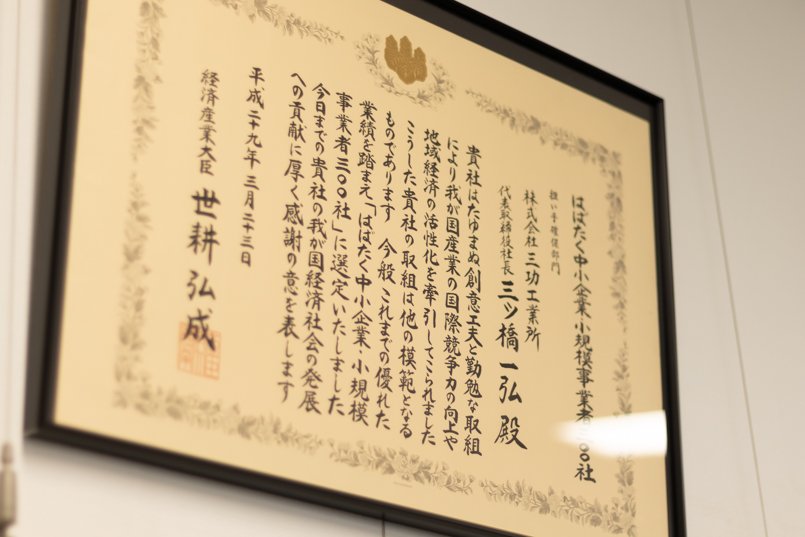 はばたく中小企業・小規模事業者三〇〇社
担い手確保部門
株式会社三功工業所
代表取締役社長 三ツ橋一弘殿
貴社はたゆまぬ創意工夫と勤勉な取組
により我が国産業の国際競争力の向上や
地域経済の活性化を牽引してこられました
こうした貴社の取組は他の模範となる
ものであります 今般 これまでの優れた
業績を踏まえ「はばたく中小企業・小規模
事業者三〇〇社」に選定いたしました
今日までの貴社の我が国経済社会の発展
への貢献に厚く感謝の意を表します
平成二十九年三月二十三日
経済産業大臣 世耕弘成